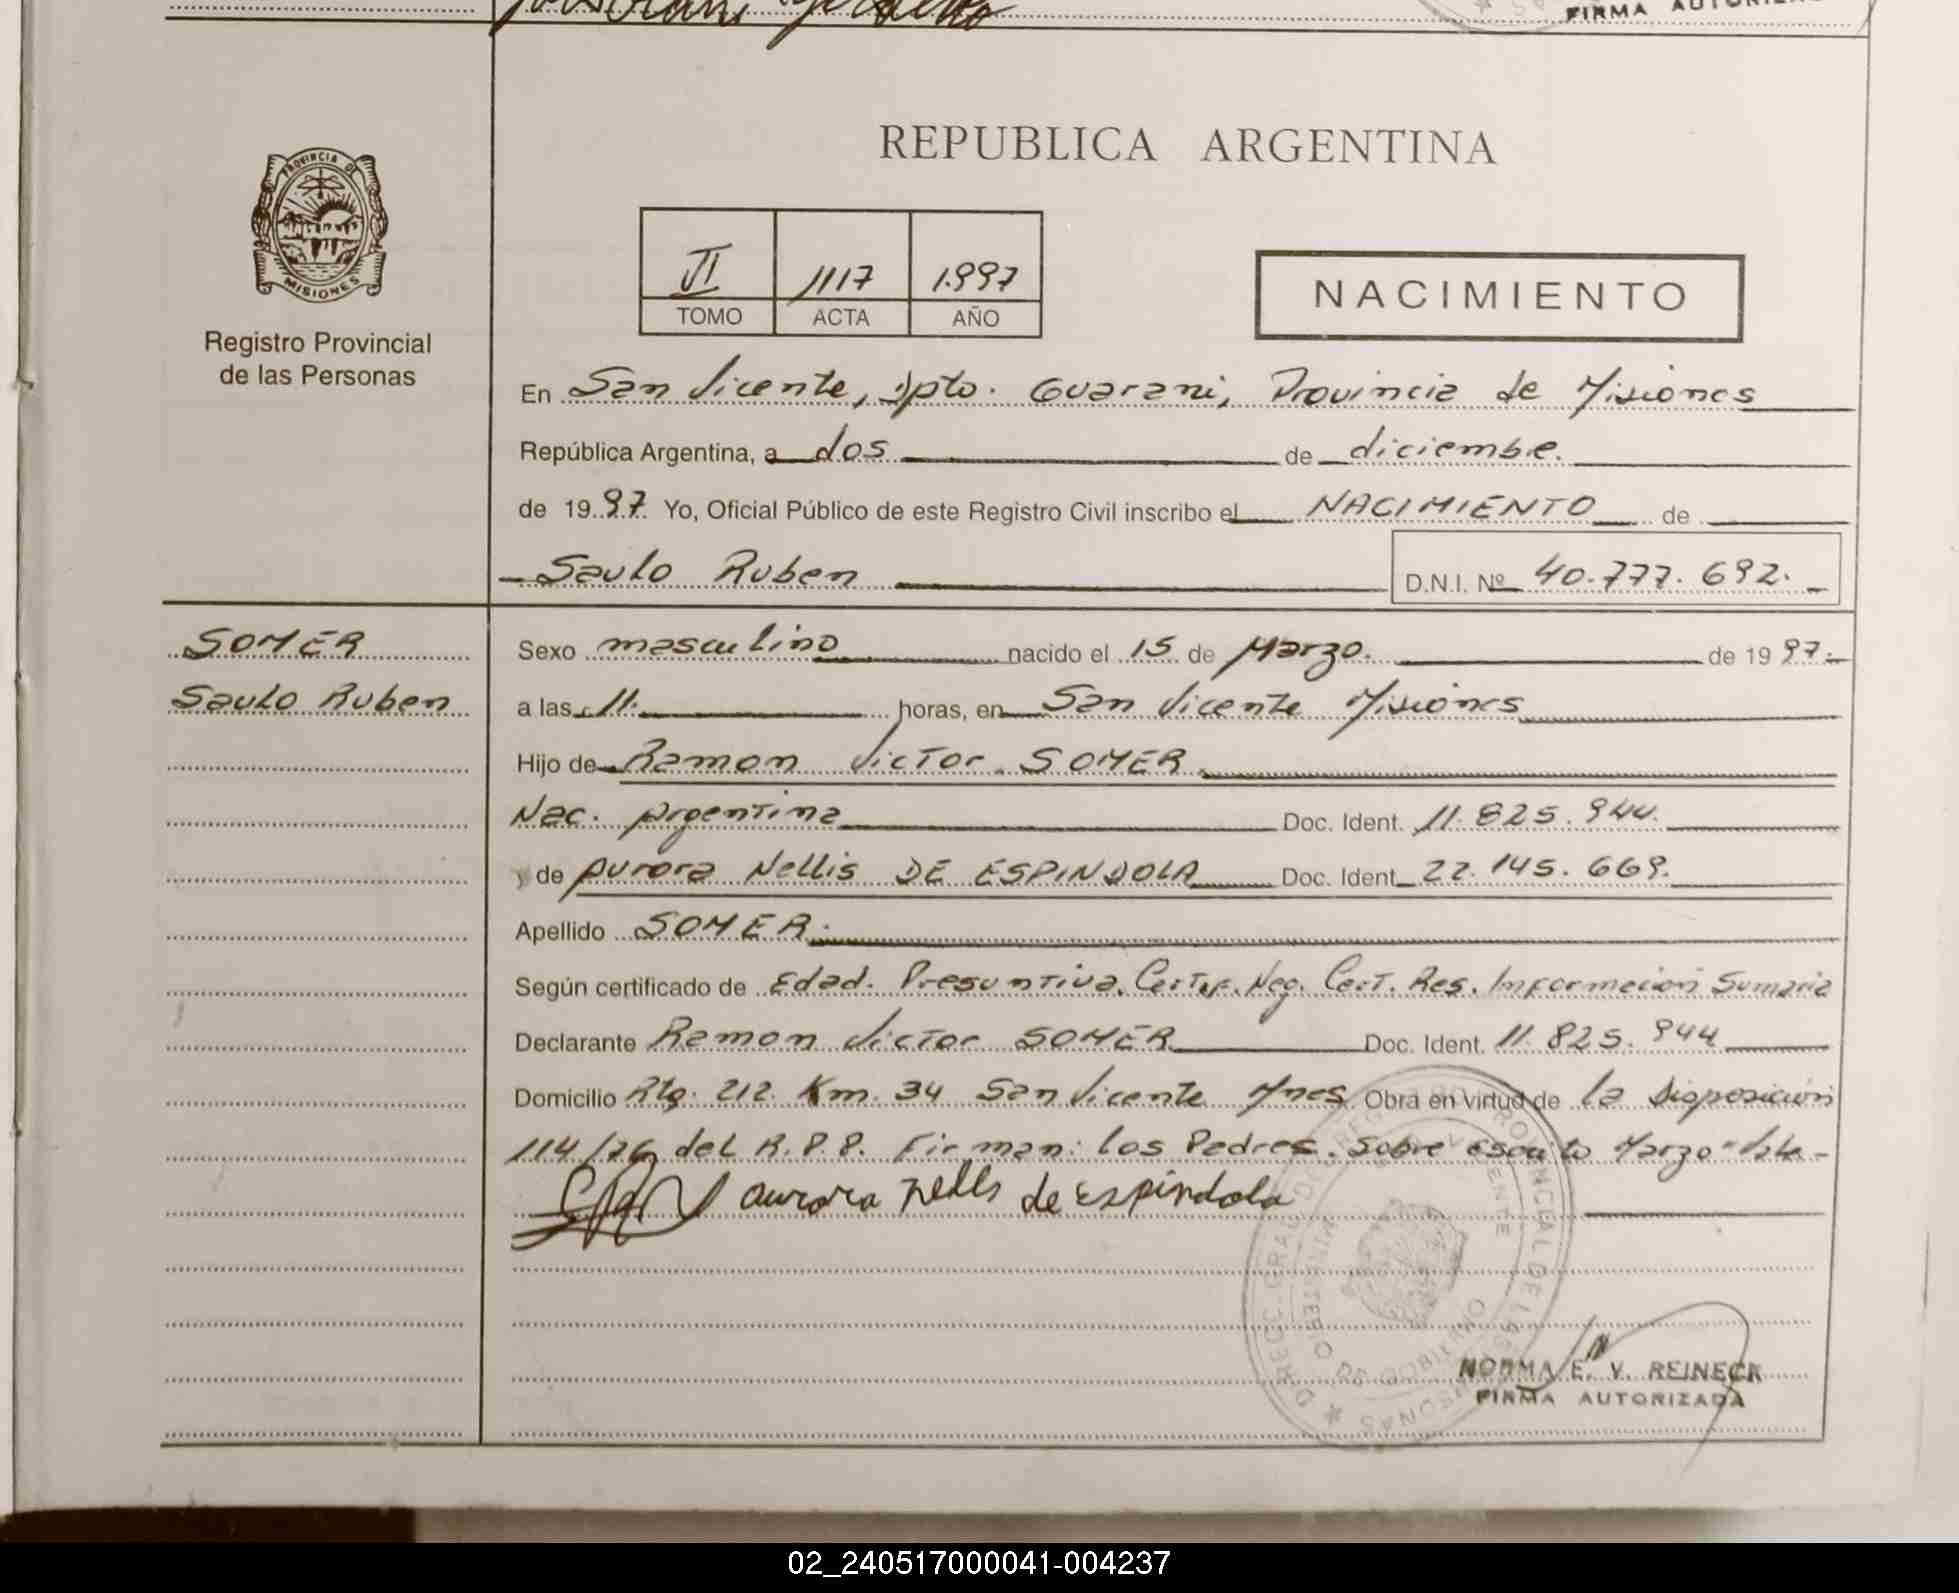 FIRMA
REPUBLICA ARGENTINA
PROVINCIA DE
MISIONES
Registro Provincial
de las Personas
VI 1117 1.997
TOMO ACTA AÑO
NACIMIENTO
En San Vicente, Dpto. Guarani, Provincia de Misiones
República Argentina, a dos de diciembre.
de 1997. Yo, Oficial Público de este Registro Civil inscribo el NACIMIENTO de
Saulo Ruben D.N.I. Nº 40.777.692.
SOMER
Saulo Ruben
Sexo masculino nacido el 15 de Marzo. de 1997.
a las 11. horas, en San Vicente Misiones
Hijo de Ramon Victor SOMER
Nac. Argentina Doc. Ident. 11.825.944.
y de Aurora Nellis DE ESPINDOLA Doc. Ident. 22.145.669.
Apellido SOMER.
Según certificado de Edad. Presuntiva. Certif. Neg. Cert. Res. Informacion Sumaria
Declarante Ramon Victor SOMER Doc. Ident. 11.825.944
Domicilio Rta. 212. Km. 34 San Vicente Mnes Obra en virtud de la Disposicion
114/76 del R.P.P. Firman: los Padres. Sobre escrito Marzo "Vale-
aurora nellis de Espindola
NORMA E. V. REINECK
FIRMA AUTORIZADA
02_240517000041-004237